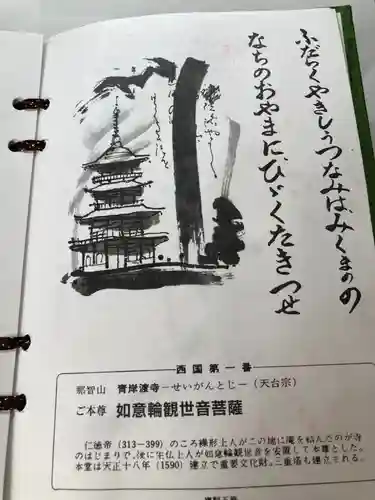 ふだらくやきしうつなみはみくまのの
なちのおやまにひゞくたきつせ
西国第一番
那智山 青岸渡寺−せいがんとじ−（天台宗）
ご本尊 如意輪観世音菩薩
仁徳帝（313−399）のころ裸形上人がこの地に庵を結んだのが寺
のはじまりで、後に生仏上人が如意輪観世音を安置して本尊とした。
本堂は天正十八年（1590）建立で重要文化財。三重塔も建立される。